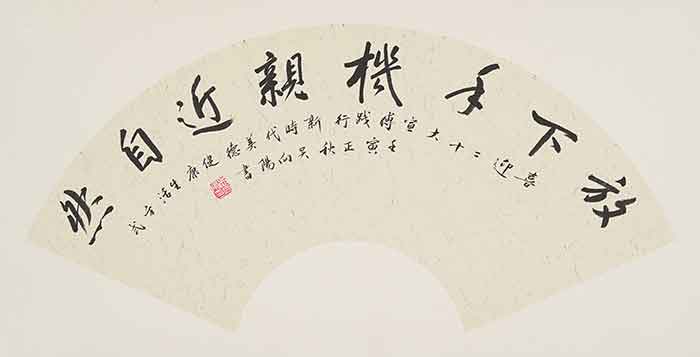 放下手機親近自然
喜迎二十大宣傳践行新時代美德健康生活方式
壬寅正秋吴向陽書